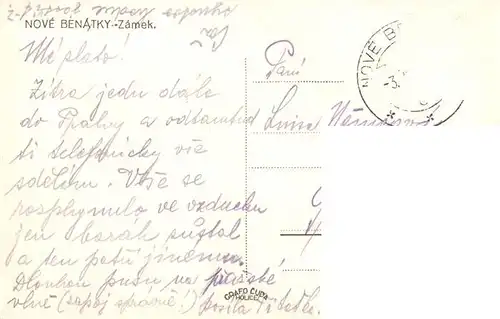 NOVÉ BENÁTKY-Zámek.
Mé zlato!
Zítra jedu dále
do Prahy a odtamtud
ti telefonicky vše
sdělím. Vše se
rozplynulo ve vzduchu
jen barák zůstal
a ten patří jinému.
Dlouhou pusu na pražské
vlně (zapoj správně!) posílá Ti
Paní
NOVÉ B
GRAFO ČUDA
HOLICE